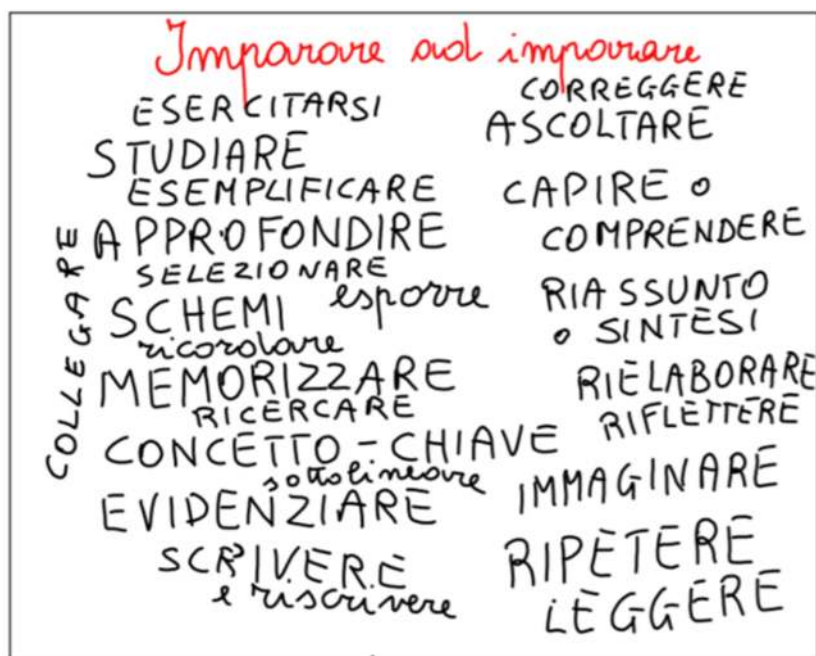 Imparare ad imparare
ESERCITARSI
STUDIARE
ESEMPLIFICARE
APPROFONDIRE
SELEZIONARE
SCHEMI esporre
ricordare
MEMORIZZARE
RICERCARE
CONCETTO-CHIAVE
sottolineare
EVIDENZIARE
SCRIVERE
e riscrivere
COLLEGARE
CORREGGERE
ASCOLTARE
CAPIRE o
COMPRENDERE
RIASSUNTO
o SINTESI
RIELABORARE
RIFLETTERE
IMMAGINARE
RIPETERE
LEGGERE